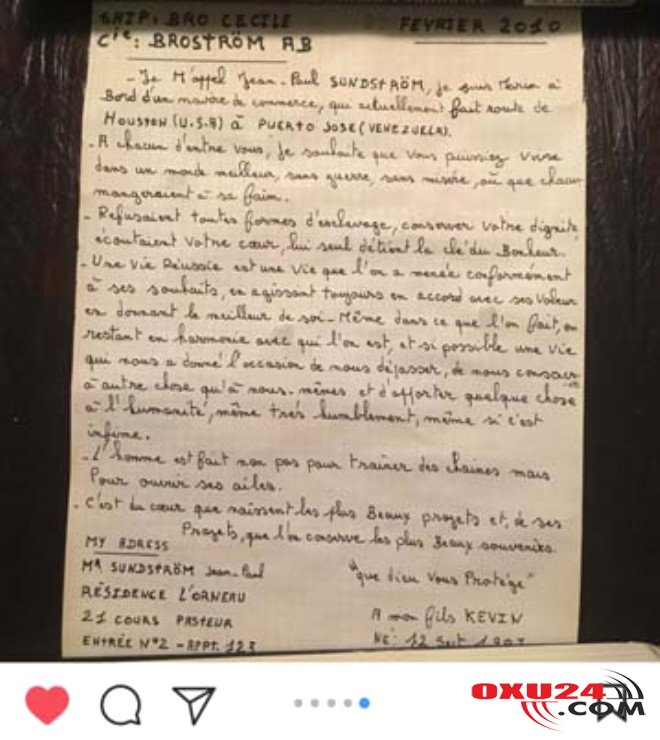 SHIP: BRO CECILE FEVRIER 2010
Cie: BROSTRÖM AB
- Je M'appel Jean-Paul SUNDSTRÖM, je suis Marin à
Bord d'un navire de commerce, qui actuellement fait route de
HOUSTON (U.S.A) à PUERTO JOSE (VENEZUELA).
- A chacun d'entre vous, je souhaite que vous puissiez vivre
dans un monde meilleur, sans guerre, sans misère, où que chacun
mangeraient à sa faim.
- Refusaient toutes formes d'esclavage, conserver votre dignité,
écoutaient votre cœur, lui seul détient la clé du Bonheur.
- Une Vie Réussie est une Vie que l'on a menée conformément
à ses souhaits, en agissant toujours en accord avec ses Valeurs
en donnant le meilleur de soi-Même dans ce que l'on fait, en
restant en harmonie avec qui l'on est, et si possible une Vie
qui nous a donné l'occasion de nous dépasser, de nous consacrer
à autre chose qu'à nous-mêmes et d'apporter quelque chose
à l'humanité, même très humblement, même si c'est
infime.
- L'homme est fait non pas pour traîner des chaînes mais
Pour ouvrir ses ailes.
- C'est du cœur que naissent les plus Beaux projets et, de ses
Projets, que l'on conserve les plus Beaux souvenirs.
MY ADRESS
Mr SUNDSTRÖM Jean-Paul
"que dieu Vous Protège"
RÉSIDENCE L'ORNEAU
21 COURS PASTEUR
A mon fils KEVIN
ENTRÉE N°2 - APPT. 123
NÉ: 12
OXU24
.COM